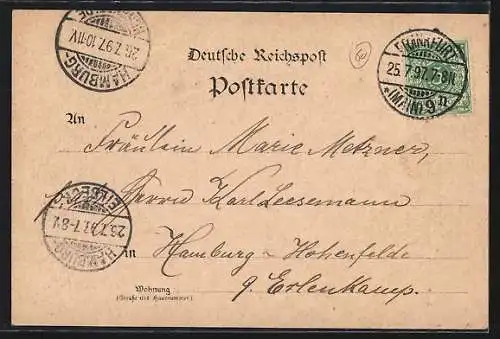 HAMBURG
26.7.97.10-11V.
Deutsche Reichspost
Postkarte
FRANKFURT
25.7.97.7-8N
*(MAIN) 9
An
Fräulein Marie Metzner,
Herrn Karl Leesemann
HAMBURG-
7-8V
in Hamburg - Hohenfelde
9. Erlenkamp.
Wohnung
(Straße und Hausnummer)